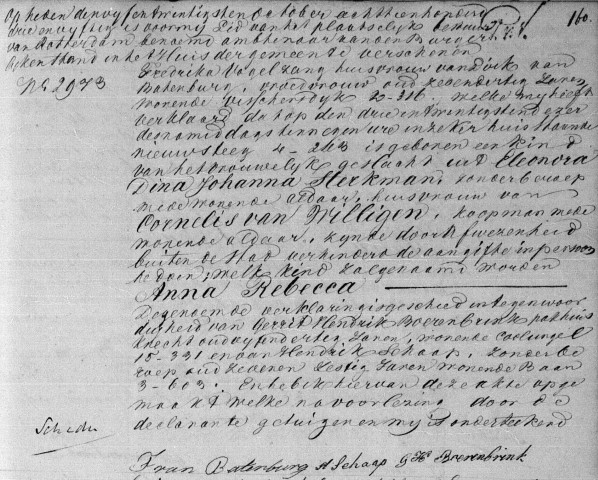 Op heden den vyf en twintigsten October achttienhonderd
drie en vyftig is voor my Lid van het plaatselyk bestuur
van Rotterdam benoemd ambtenaar van den Burger 160.
lyken stand in het Huis der gemeente verschenen
No 2973 Fredrika Vogelzang huisvrouw van Dirk van
Batenburg, vroedvrouw oud zevendertig Jaren
wonende visschersdyk 2-316, welke my heeft
verklaard dat op den drie en twintigsten dezer
des namiddags ten negen ure in zeker huis staande
nieuwsteeg 4-243 is geboren een kind
van het vrouwelyk geslacht uit Eleonora
Dina Johanna Sterkman, zonder beroep
mede wonende aldaar, huisvrouw van
Cornelis van Willigen, koopman mede
wonende aldaar, zynde door afwezenheid
buiten de stad verhinderd de aangifte in persoon
te doen, welk kind zal genaamd worden
Anna Rebecca
Degenoemde verklaring is geschied in tegenwoor
digheid van Gerrit Hendrik Boerenbrink pakhuis
knecht oud vyfendertig Jaren, wonende Coolsingel
15-331 en van Hendrik Schaap, zonder be
roep oud zeven en zestig Jaren wonende Baan
3-603. En heb ik hiervan deze akte opge
maakt welke na voorlezing door de
declarante getuigen en my is onderteekend
Batenburg H Schaap GH Boerenbrink